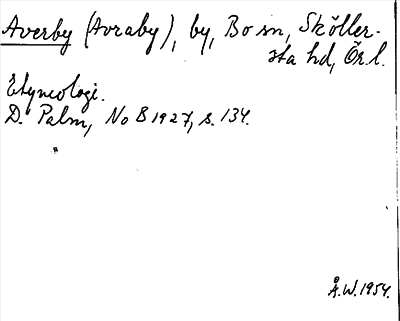 Averby (Avraby), by, Bo sn, Sköller-
sta hd, Ör. l.
Etymologi.
D. Palm, NoB 1927, s. 134.
"
Å.W. 1954.